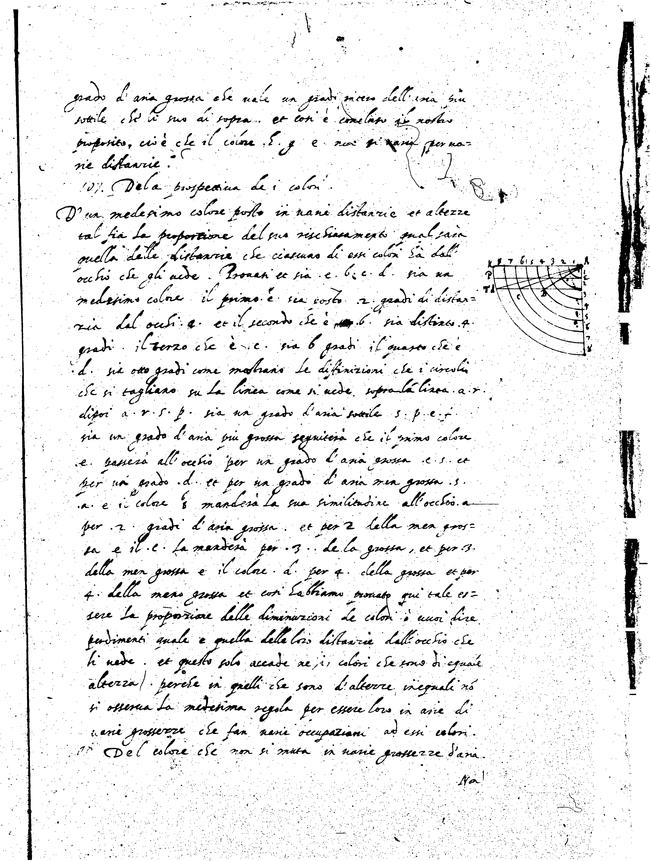 grado d'aria grossa che vale un grado intero dell'aria piu
sottile che li sta di sopra. et cosi è concluso il nostro
proposito, cio è che il colore .h. g e. non si varia per ua=
rie distantie.
107. Dela prospettiua de i colori.
D'un medesimo colore posto in uarie distantie et altezze
tal fia la proportione del suo rischiaramento qual saria
quella delle distantie che ciascuno di essi colori hà dall'
occhio che gli uede. Prouasi et sia .e. b. c. d. sia un
medesimo colore il primo .e. sia posto .2. gradi di distan=
zia dal occhi. a. et il secondo che è b. sia distante .4.
gradi. il terzo che è .c. sia 6 gradi il quarto che è
.d. sie otto gradi come mostrano le diffinizioni che i circuli
che si tagliano su la linea come si uede sopra la linea .a.r.
dipoi a.r.s.p. sia un grado d'aria sottile s.p.e.t.
sia un grado d'aria più grossa seguiterà che il primo colore
.e. passerà all'occhio per un grado d'aria grossa .e.s. et
per un grado .d. et per un grado d'aria men grossa .s.
.a. e il colore b manderà la sua similitudine all'occhio.a
per .2. gradi d'aria grossa. et per 2 della men gros=
sa e il .c. la manderà per .3.. de la grossa, et per .3.
della men grossa e il colore .d. per 4. della grossa et per
4. della meno grossa et cosi habbiamo prouato qui tale es=
sere la proportione delle diminuzioni de colori ò uuoi dire
perdimenti quale e quella delle loro distantie dall'occhio che
li uede. et questo solo accade ne i colori che sono di eguale
altezza. perche in quelli che sono d'altezze inequali nō
si osserua la medesima regola per essere loro in arie di
uarie grossezze che fan uarie occupationi ad essi colori.
Del colore che non si muta in uarie grossezze d'aria.
Non